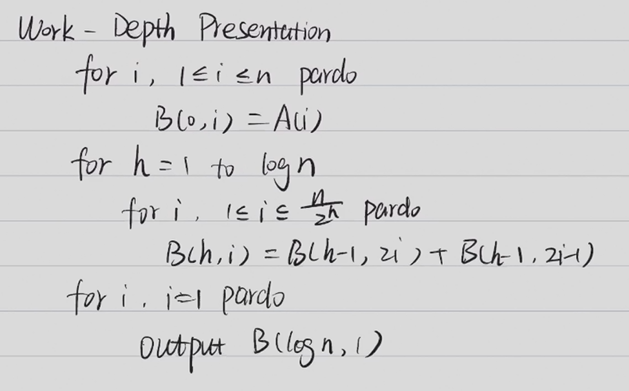 Work - Depth Presentation
for i, 1≤i≤n pardo
B(0,i) = A(i)
for h=1 to log n
for i, 1≤i≤ n/2h pardo
B(h,i) = B(h-1, 2i) + B(h-1, 2i-1)
for i, i=1 pardo
output B(log n, 1)